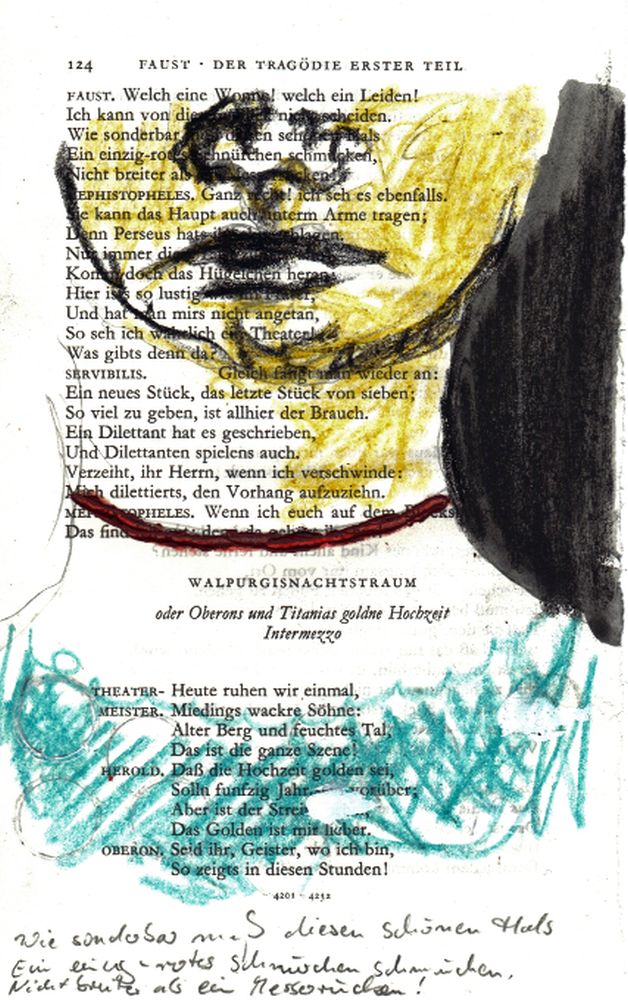 124 FAUST · DER TRAGÖDIE ERSTER TEIL
FAUST. Welch eine Wonne! welch ein Leiden!
Ich kann von diesem Blick nicht scheiden.
Wie sonderbar muß diesen schönen Hals
Ein einzig-rotes Schnürchen schmücken,
Nicht breiter als
MEPHISTOPHELES. Ganz recht! ich seh es ebenfalls.
Sie kann das Haupt auch unterm Arme tragen;
Denn Perseus hats ihr abgeschlagen.
Nur immer die
Komm doch das Hügelchen heran,
Hier ists so lustig
Und hat man mirs nicht angetan,
So seh ich wahrlich ein Theater!
Was gibts denn da?
SERVIBILIS. Gleich fängt man wieder an:
Ein neues Stück, das letzte Stück von sieben;
So viel zu geben, ist allhier der Brauch.
Ein Dilettant hat es geschrieben,
Und Dilettanten spielens auch.
Verzeiht, ihr Herrn, wenn ich verschwinde:
Mich dilettierts, den Vorhang aufzuziehn.
MEPHISTOPHELES. Wenn ich euch auf dem Blocksberg
Das find
WALPURGISNACHTSTRAUM
oder Oberons und Titanias goldne Hochzeit
Intermezzo
THEATER- Heute ruhen wir einmal,
MEISTER. Miedings wackre Söhne:
Alter Berg und feuchtes Tal,
Das ist die ganze Szene!
HEROLD. Daß die Hochzeit golden sei,
Solln funfzig Jahr vorüber;
Aber ist der Streit
Das Golden ist mir lieber.
OBERON. Seid ihr, Geister, wo ich bin,
So zeigts in diesen Stunden!
4201 – 4232
Wie sonderbar muß diesen schönen Hals
Ein einzig-rotes Schnürchen schmücken,
Nicht breiter als ein Messerrücken!